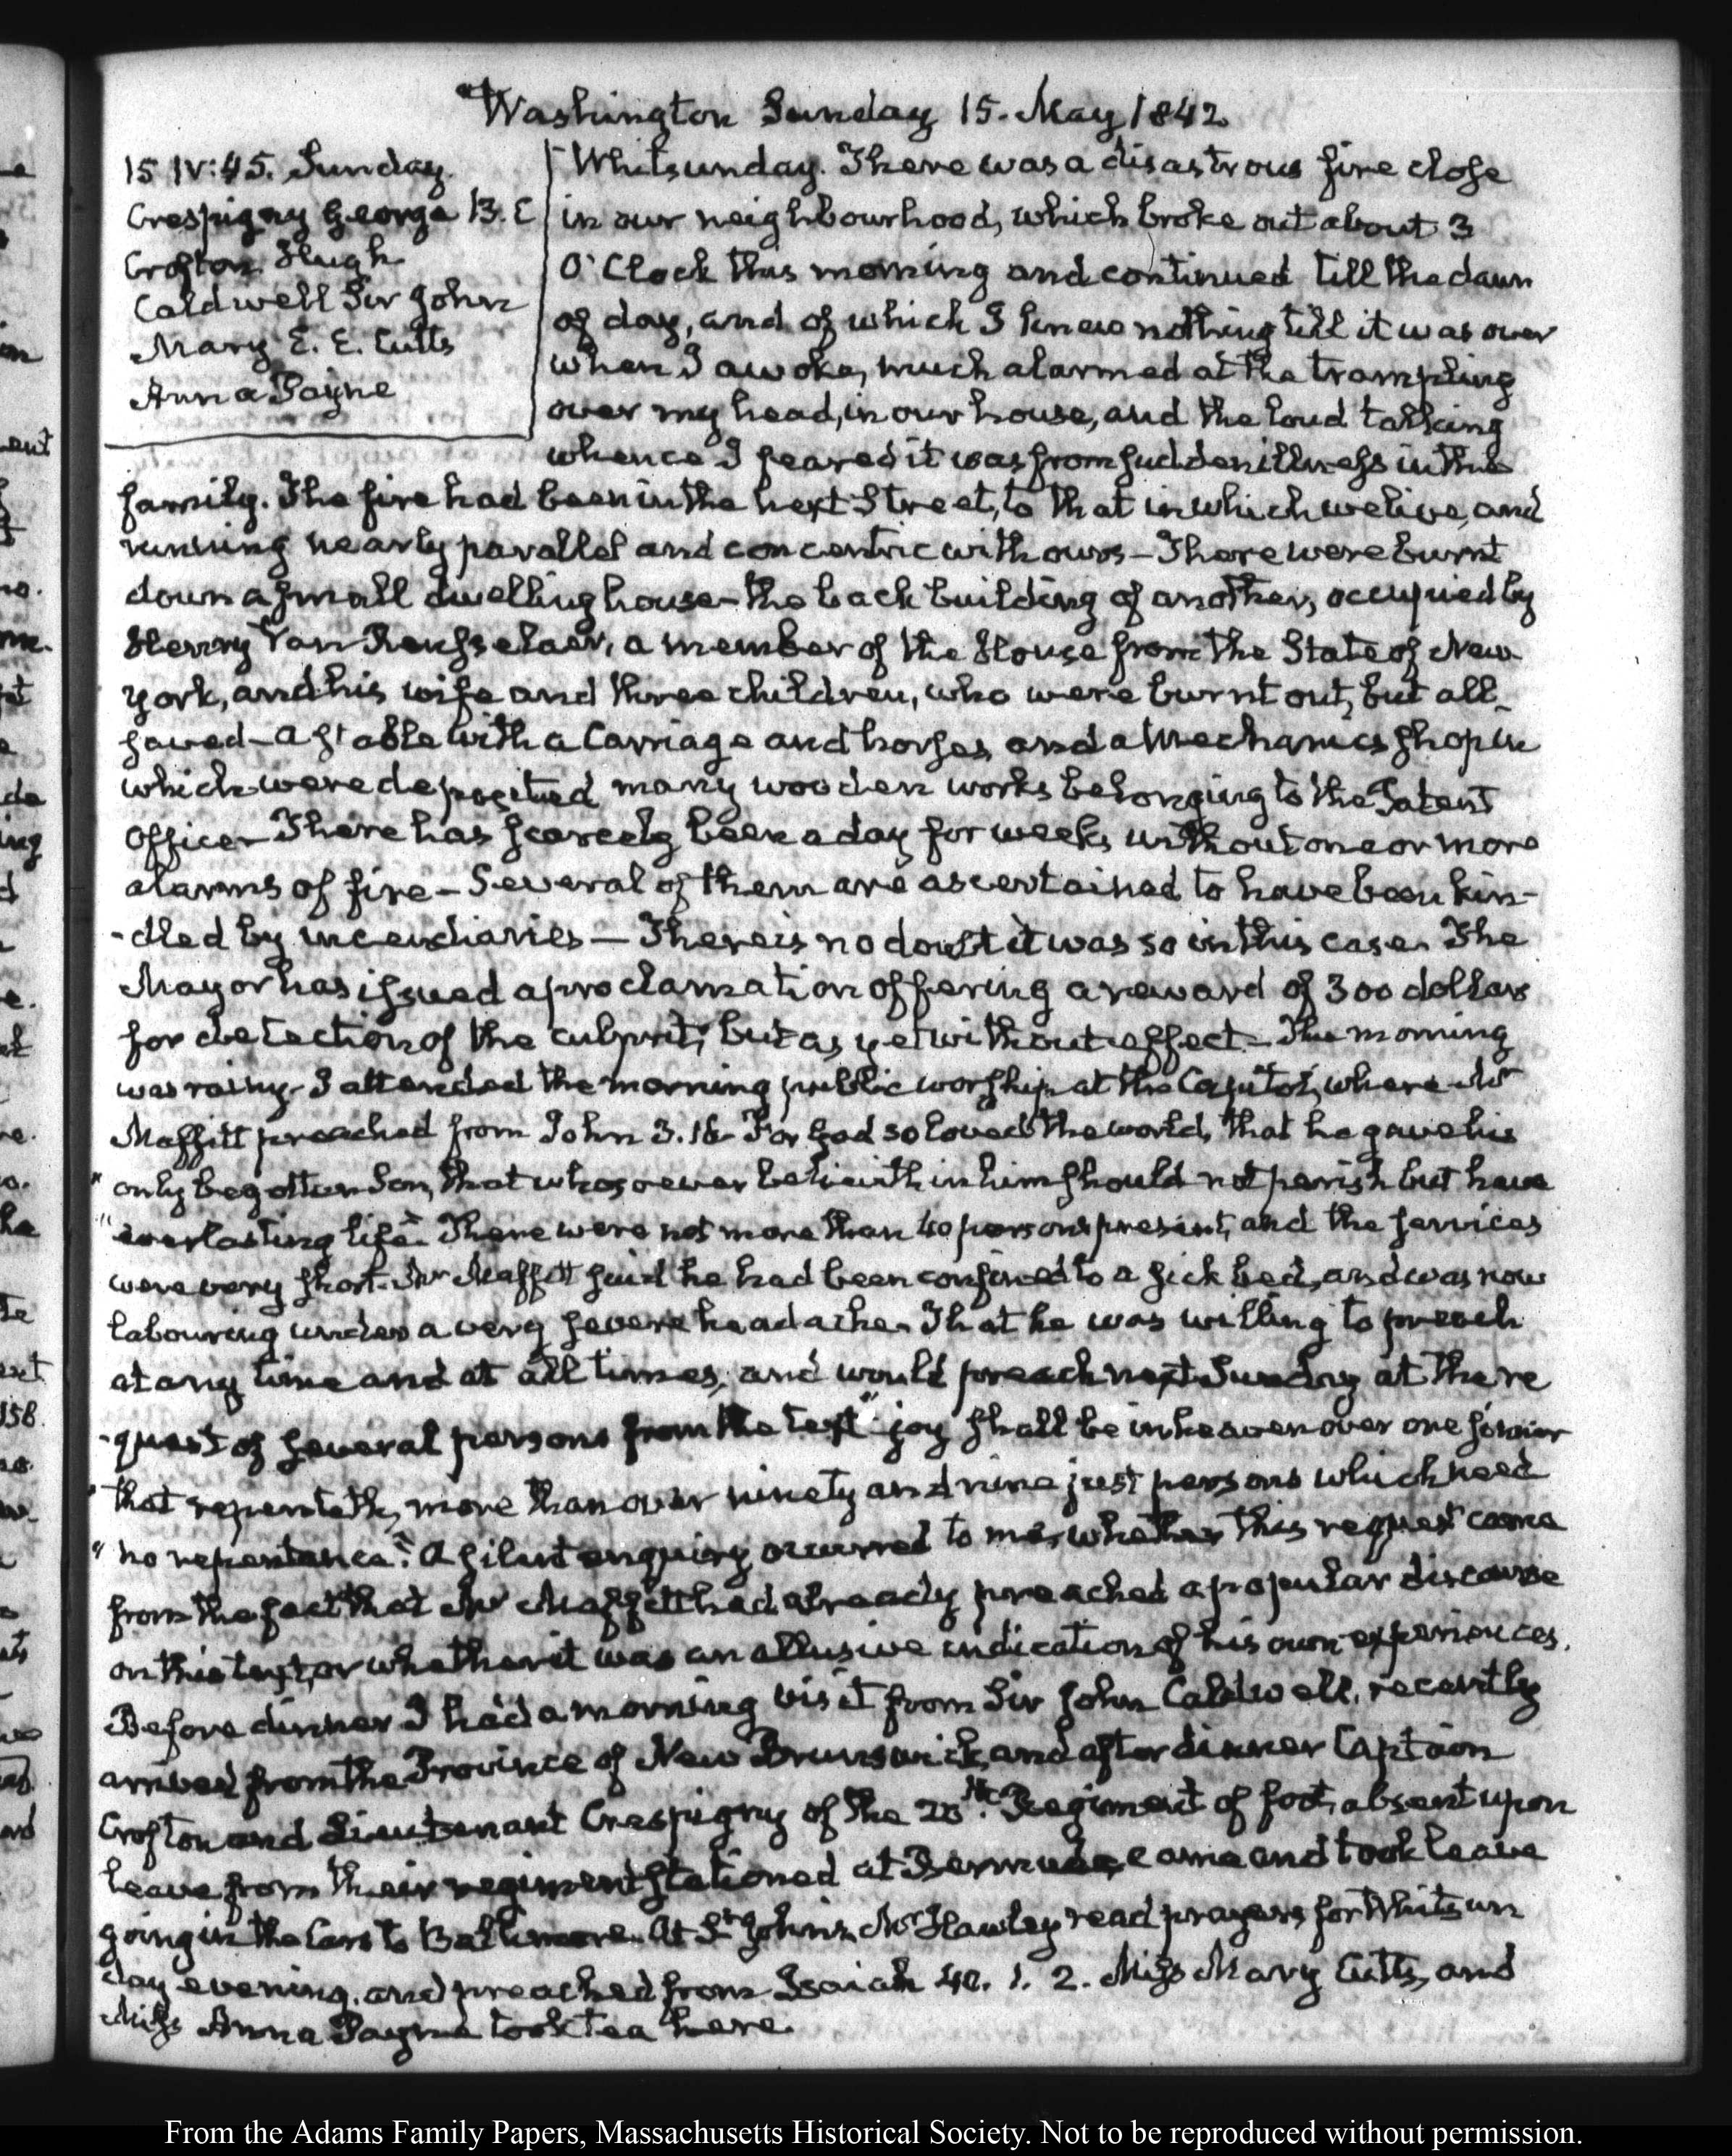 Washington Sunday 15. May 1842
15 IV:45. Sunday.
Crespigny George B. C
Crofton Hugh
Caldwell Sir John
Mary E. E. Cutts
Anna Payne
Whitsunday. There was a disastrous fire close
in our neighbourhood, which broke out about 3
O'Clock this morning and continued till the dawn
of day, and of which I knew nothing till it was over
when I awoke, much alarmed at the trampling
over my head, in our house, and the loud talking
whence I feared it was from sudden illness in the
family. The fire had been in the next Street, to that in which we live, and
running nearly parallel and concentric with ours – There were burnt
down a small dwelling house – the back building of another, occupied by
Henry Van Rensselaer, a member of the House from the State of New
York, and his wife and three children, who were burnt out, but all
saved – a stable with a Carriage and horses, and a Mechanics shop in
which were deposited many wooden works belonging to the Patent
Office – There has scarcely been a day for weeks without one or more
alarms of fire – Several of them are ascertained to have been kin-
-dled by incendiaries – There is no doubt it was so in this case. The
Mayor has issued a proclamation offering a reward of 300 dollars
for detection of the culprit, but as yet without effect – The morning
was rainy. I attended the morning public worship at the Capitol, where Mr
Maffitt preached from John 3.16. For God so loved the world, that he gave his
" only begotten Son, that whosoever believeth in him should not perish but have
" everlasting life". There were not more than 40 persons present, and the services
were very short. Mr Maffitt said he had been confined to a sick bed, and was now
labouring under a very severe headache. That he was willing to preach
at any time and at all times, and would preach next Sunday at the re
-quest of several persons from the text "joy shall be in heaven over one sinner
" that repenteth, more than over ninety and nine just persons which need
" no repentance". A silent enquiry occurred to me, whether this request came
from the fact that Mr Maffitt had already preached a popular discourse
on this text, or whether it was an allusive indication of his own experiences.
Before dinner I had a morning visit from Sir John Caldwell, recently
arrived from the Province of New Brunswick, and after dinner Captain
Crofton and Lieutenant Crespigny of the 20th. Regiment of foot, absent upon
leave from their regiment stationed at Bermuda, came and took leave
going in the Cars to Baltimore. At St. John's, Mr Hawley read prayers for Whitsun
day evening, and preached from Isaiah 40. 1. 2. Miss Mary Cutts, and
Miss Anna Payne took tea here.
From the Adams Family Papers, Massachusetts Historical Society. Not to be reproduced without permission.